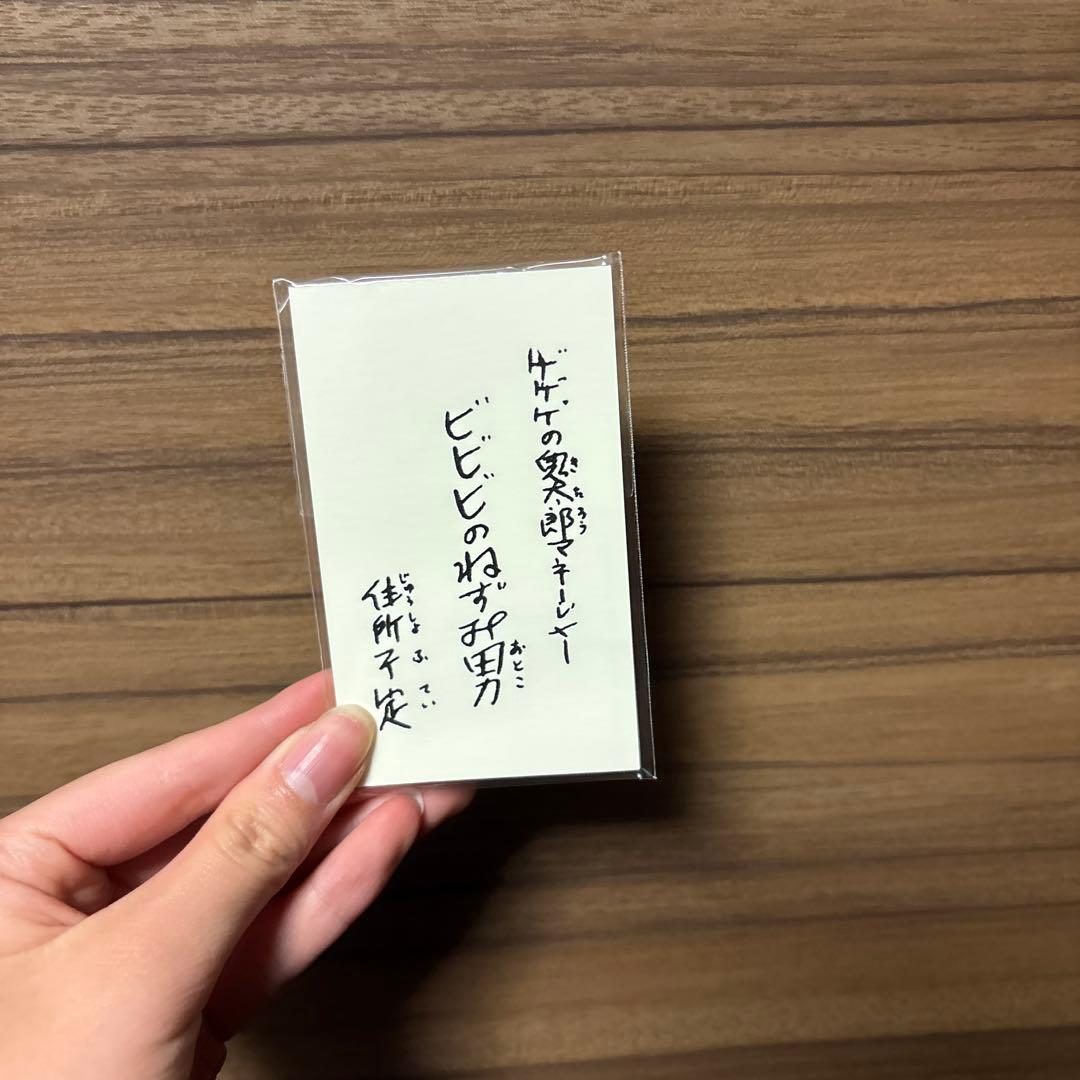 ゲゲゲの鬼太郎マネージャー
きたろう
ビビビのねずみ男
おとこ
住所不定
じゅうしょふてい